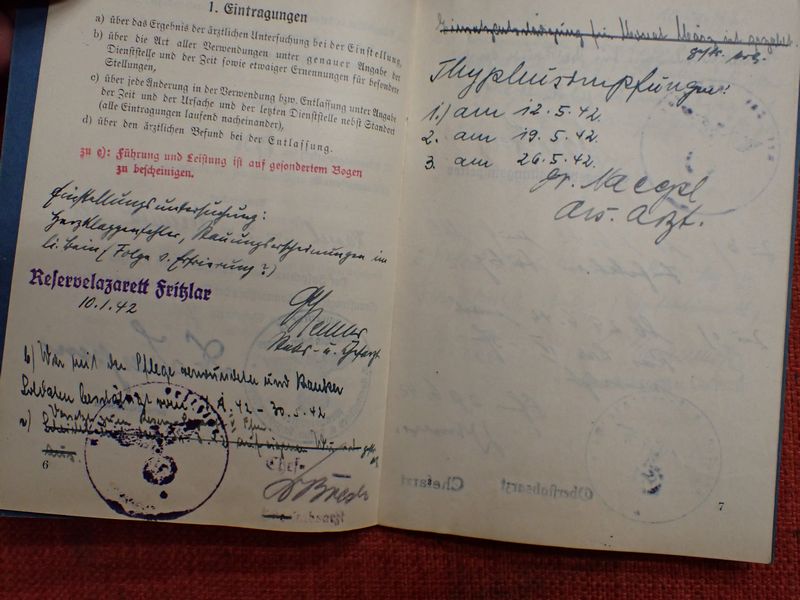 1. Eintragungen
a) über das Ergebnis der ärztlichen Untersuchung bei der Einstellung,
b) über die Art aller Verwendungen unter genauer Angabe der
Dienststelle und der Zeit sowie etwaiger Ernennungen für besondere
Stellungen,
c) über jede Änderung in der Verwendung bzw. Entlassung unter Angabe
der Zeit und der Ursache und der letzten Dienststelle nebst Standort
(alle Eintragungen laufend nacheinander),
d) über den ärztlichen Befund bei der Entlassung.
zu c): Führung und Leistung ist auf gesondertem Bogen
zu bescheinigen.
Einstellungsuntersuchung:
Herzklappenfehler, Stauungserscheinungen im
li. Bein (Folge v. Erfrierung?)
Reservelazarett Fritzlar
10.1.42
Stabs- u. Chefarzt
b) War mit der Pflege verwundeter und kranker
Soldaten beschäftigt vom 42 – 30.5.42
Chef-
6
Thyphusimpfungen:
1.) am 12.5.42.
2. am 19.5.42.
3. am 26.5.42.
Dr. Naegel
Ass. Arzt.
Chefarzt
Oberstabsarzt
7